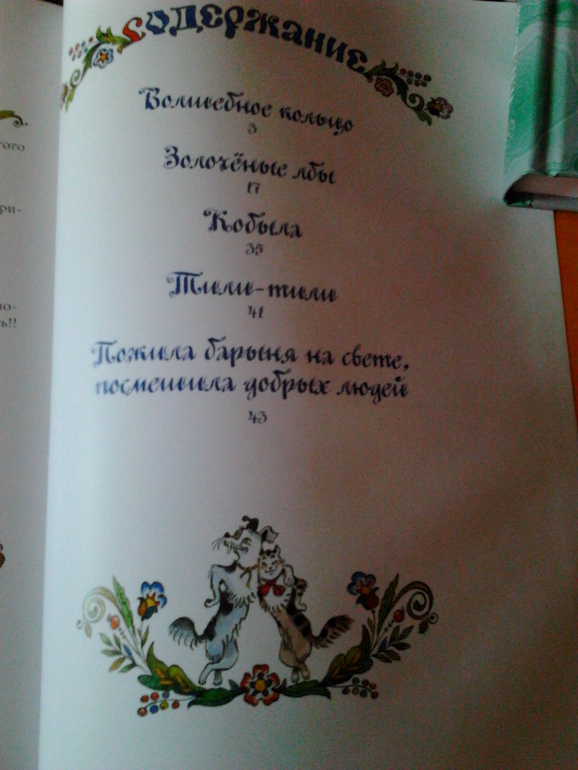 Содержание
Волшебное кольцо
3
Золочёные лбы
17
Кобыла
35
Тили-тили
41
Пожила барыня на свете,
посмешила добрых людей
43
того
ри-
ь!!